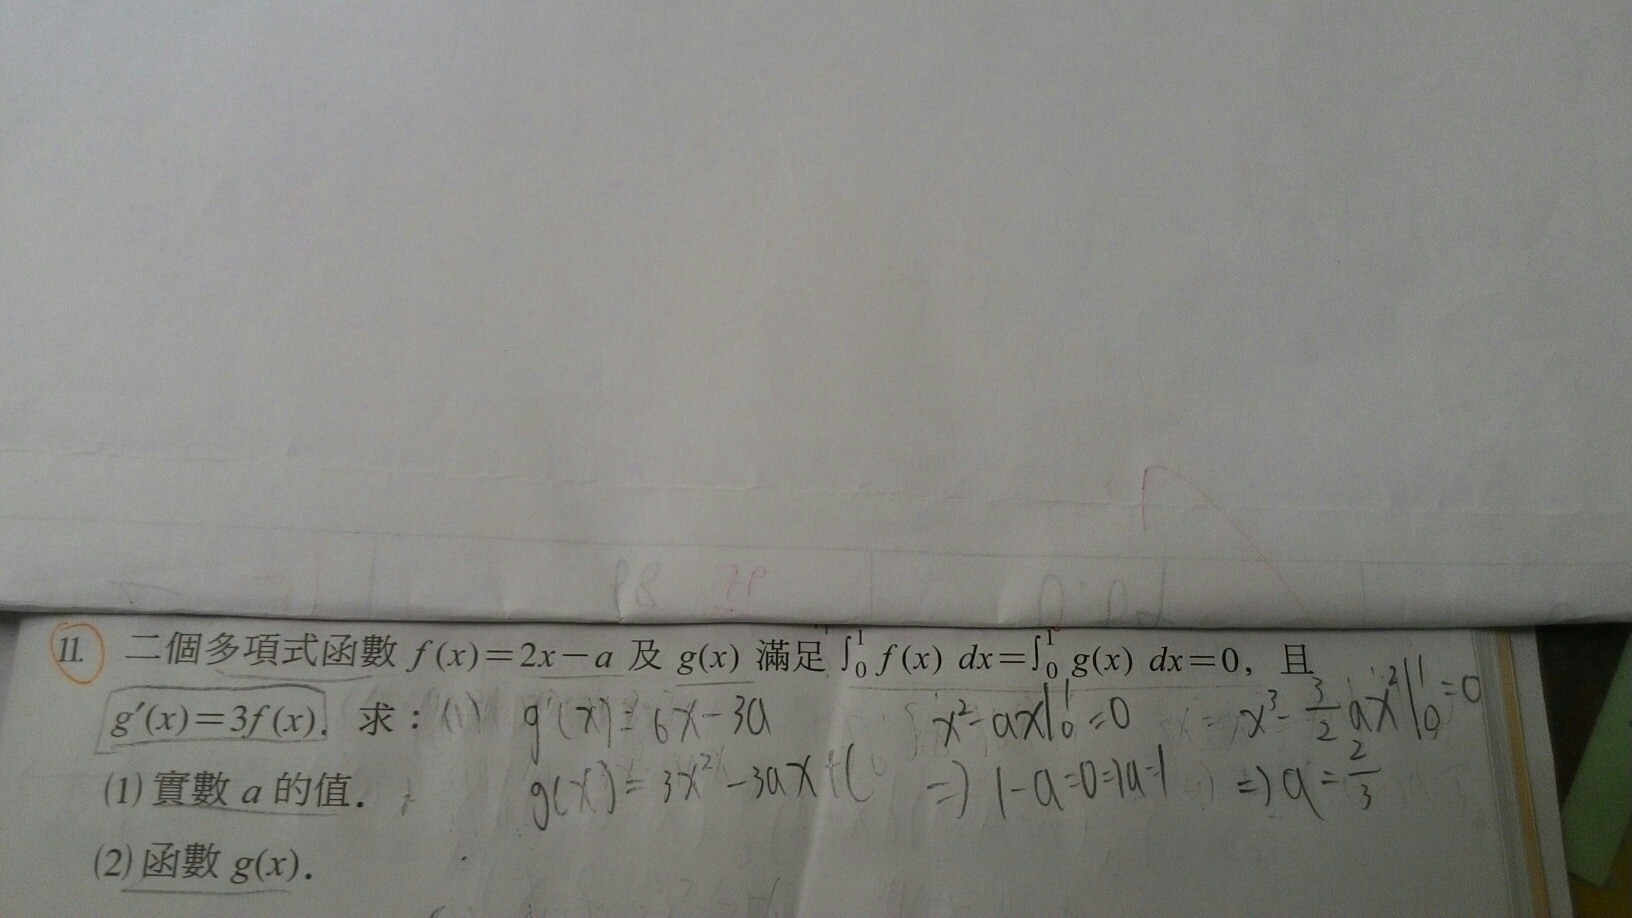 11. 二個多項式函數 f(x)=2x−a 及 g(x) 滿足 ∫₀¹ f(x) dx=∫₀¹ g(x) dx=0, 且
g′(x)=3f(x). 求: (1) g′(x)=6x−3a x²−ax|₀¹=0 x³−3/2ax²|₀¹=0
(1) 實數 a 的值. g(x)=3x²−3ax+C ⇒1−a=0⇒a=1 ⇒a=2/3
(2) 函數 g(x).